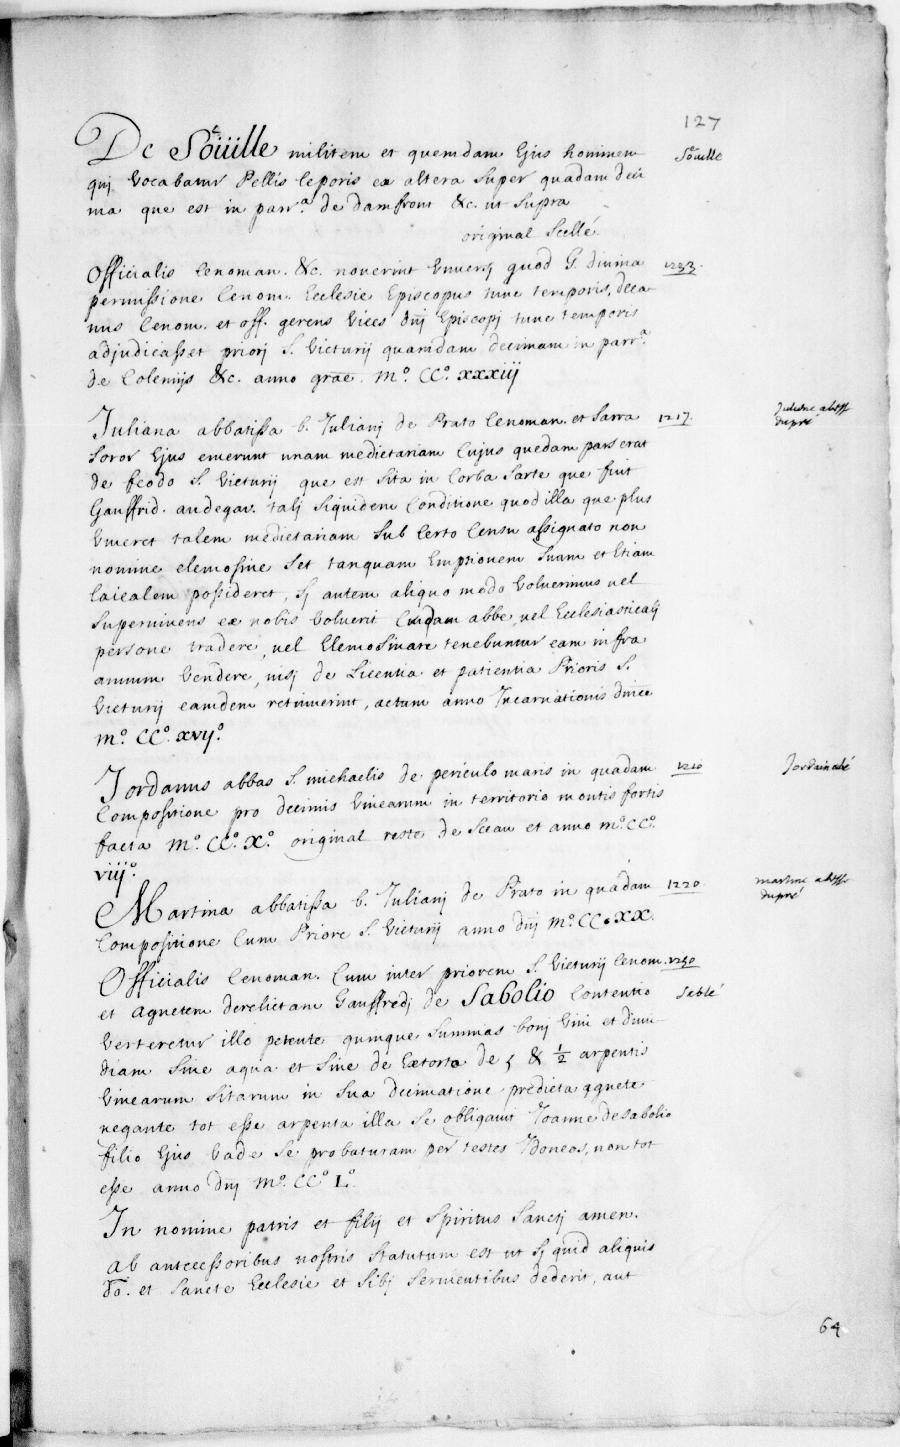 127
De Soüille militem et quemdam Ejus hominem
Soüille
qui Vocabatur Pellis leporis ex altera super quadam deci
ma que est in parr.a de damfront &c. ut supra
original Scellé.
Officialis Cenoman. &c. noverint Universi quod G. divina
1233.
permissione Cenom. Ecclesie Episcopus tunc temporis, deca-
nus Cenom. et off. gerens Vices dnj Episcopj tunc temporis
adjudicasset priorj S. Victurij quamdam decimam in parr.a
de Colemijs &c. anno grãe. M.o CC.o XXXiij
Juliana abbatissa b. Julianj de Prato Cenoman. et Sarra
1217.
Julienne abesse
dupré
Soror Ejus emerunt unam medietariam Cujus quedam pars erat
de feodo S. Victurij que est Sita in Corba Sarte que fuit
Gauffrid. andegav. talj Siquidem Conditione quod illa que plus
Viveret talem medietariam Sub Certo Censu assignato non
nomine elemosine Set tanquam Emptionem Suam et Etiam
laicalem possideret, Sj autem aliquo modo Voluerimus vel
Supervivens ex nobis Voluerit Cuidam abbe, vel Ecclesiasticalj
persone tradere, vel Elemosinare tenebuntur eam infra
annum Vendere, nisj de Licentia et patientia Prioris S.
Victurij eamdem retinuerint, actum anno Incarnationis dnice
M.o CC.o XVIJ.o
Jordanus abbas S. michaelis de periculo maris in quadam
1210
Jordain abé
Compositione pro decimis Vinearum in territorio montis fortis
facta M.o CC.o X.o original reste de Sceau et anno M.o CC.o
viij.o
Martina abbatissa b. Julianj de Prato in quadam
1220.
martine abesse
dupré
Compositione Cum Priore S. Victurij anno dnj M.o CC.o XX.
Officialis Cenoman. Cum inter priorem S. Victurij Cenom.
1250
et agnetem derelictam Gauffredj de Sabolio Contentio
Sablé
Verteretur illo petente quinque Summas bonj Vini et dimi-
diam Sine aqua et Sine de Extorta de 5 & 1/2 arpentis
Vinearum Sitarum in Sua decimatione predicta agnete
negante tot esse arpenta illa Se obligavit Joanne de Sabolio
filio Ejus Vade Se probaturam per testes Ydoneos, non tot
esse anno dnj M.o CC.o L.o
In nomine patris et filij et Spiritus Sanctj amen.
ab antecessoribus nostris Statutum est ut Sj quid aliquis
dõ. et Sancte Ecclesie et Sibj Servientibus dederit, aut
64